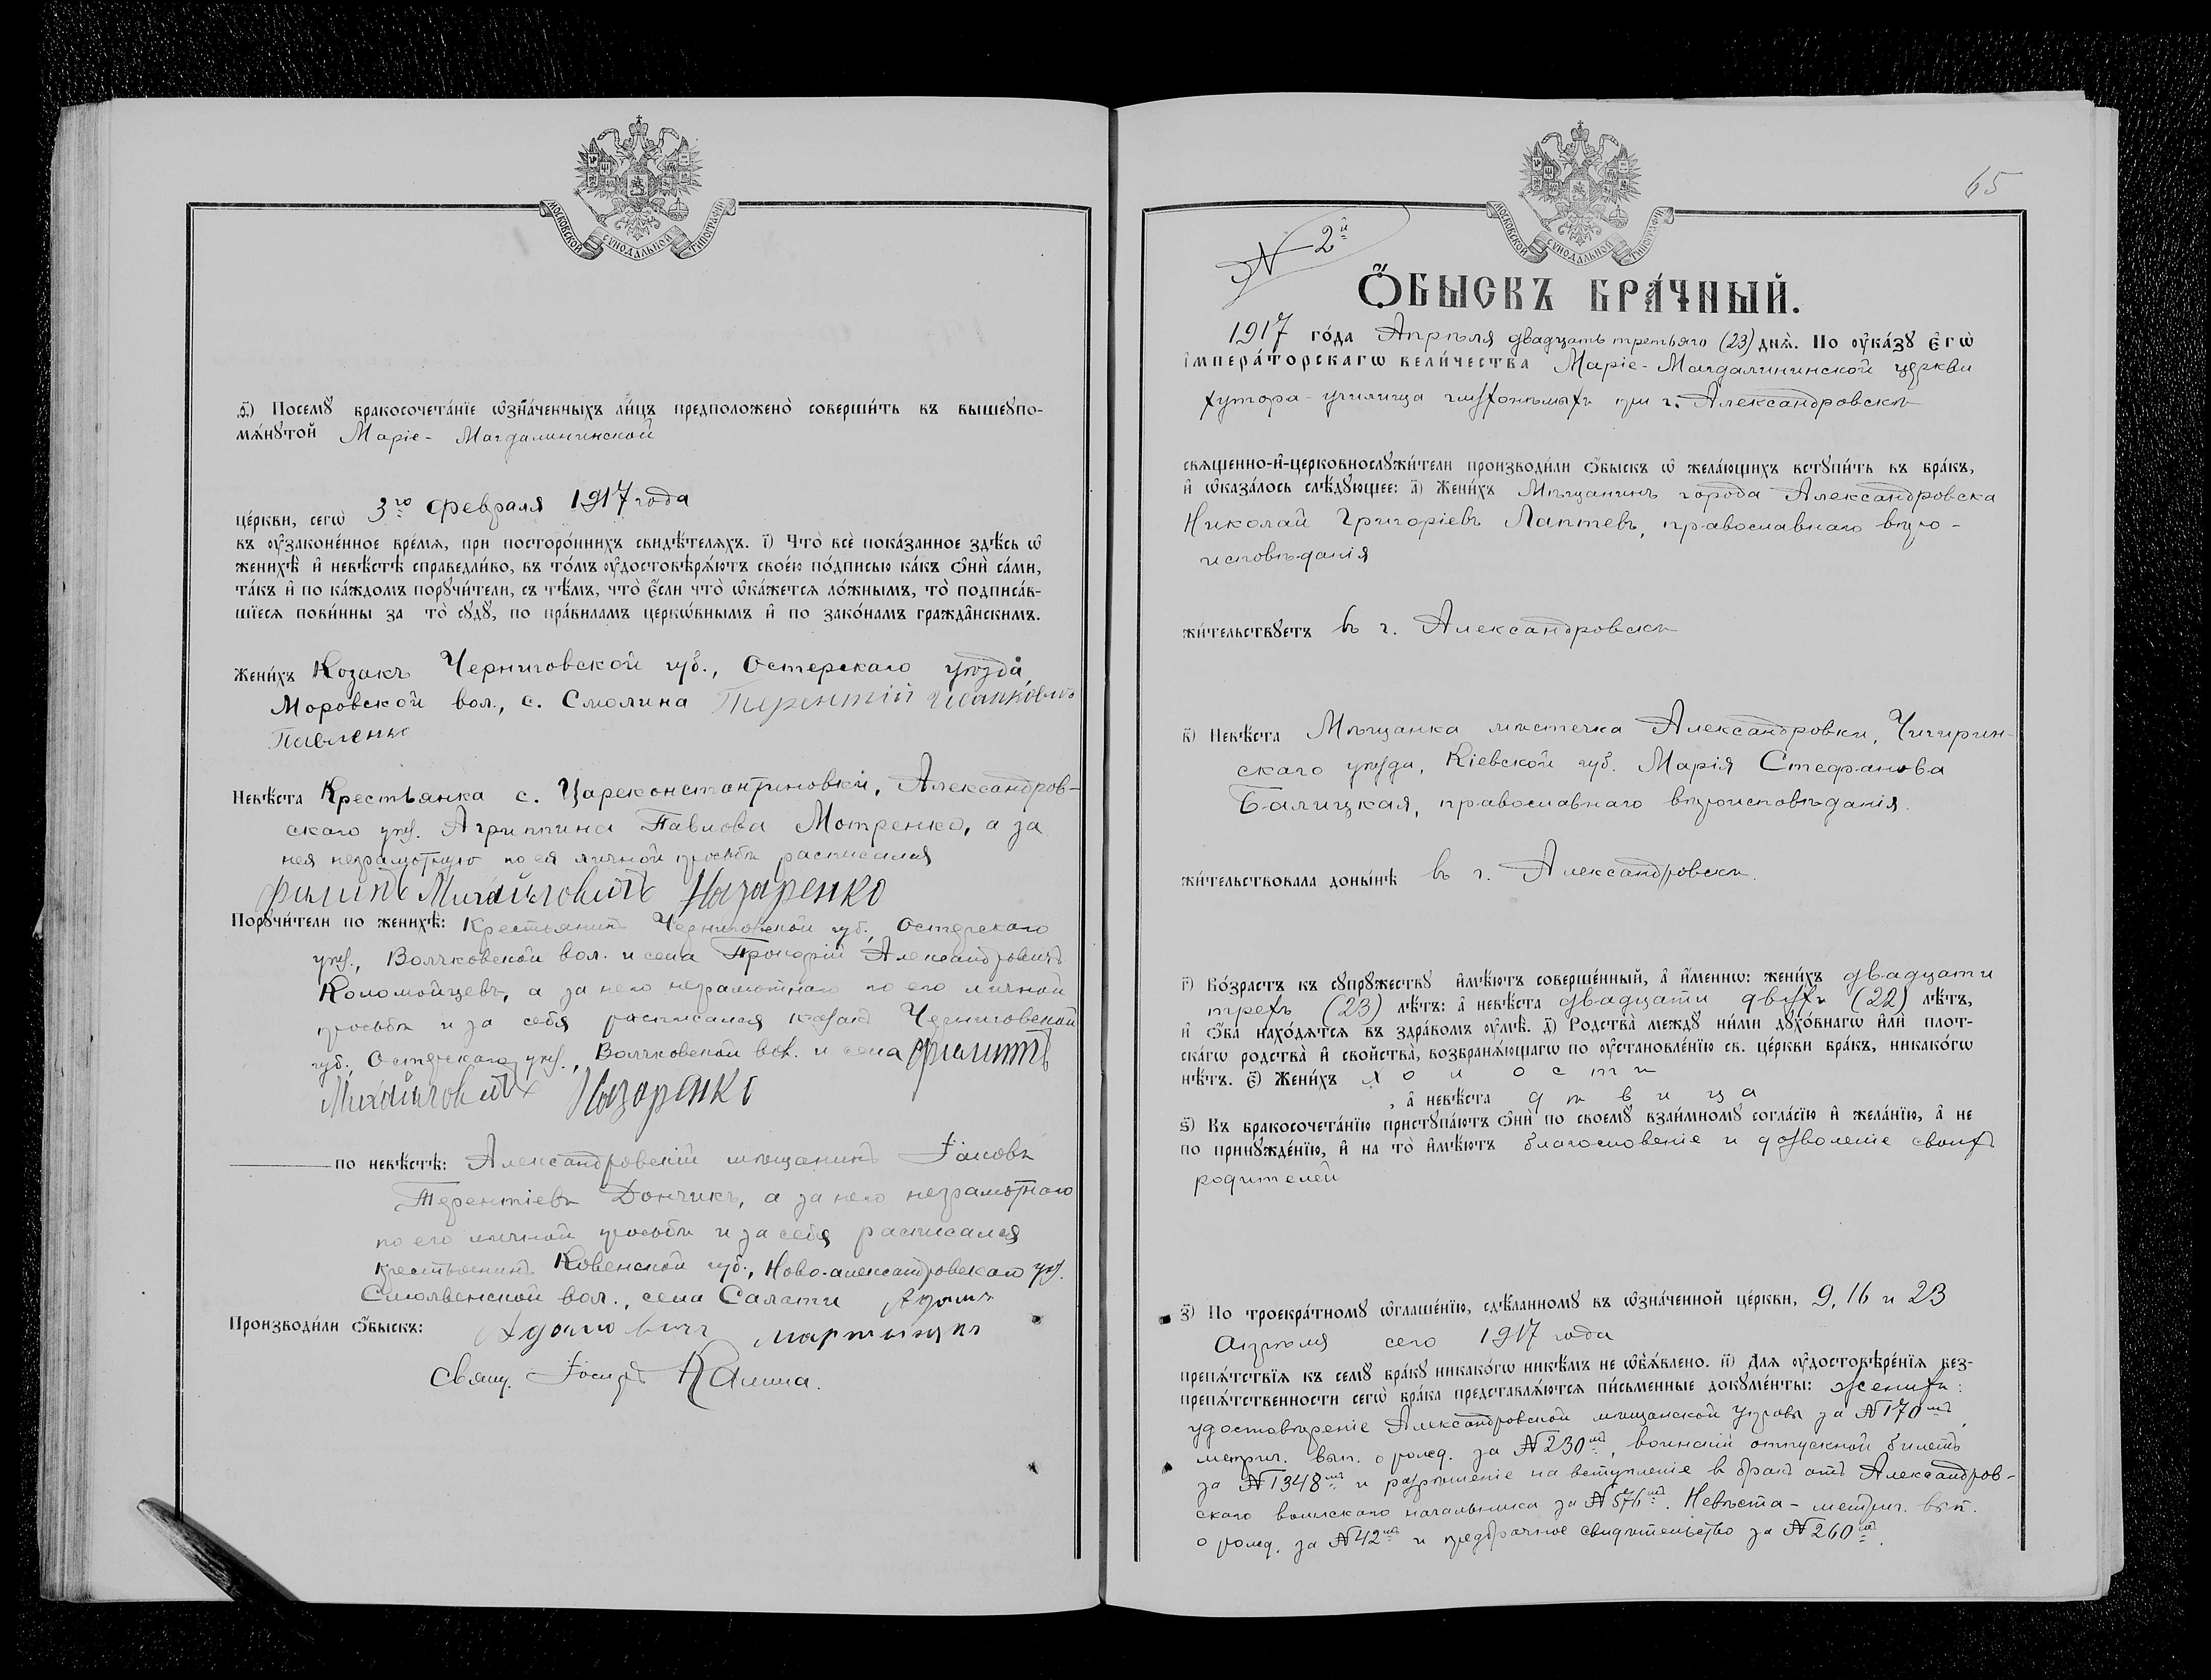 МОСКОВСКОЙ СѴНОДАЛЬНОЙ ТИПОГРАФІИ
ѳ҃) Посемꙋ̀ бракосочета́нїе ѡ҆зна́ченныхъ ли́цъ предположено̀ соверши́ть въ вышеꙋпо-
мѧ́нꙋтой Маріе-Магдалининской
це́ркви, сегѡ̀ 3го февраля 1917 года
въ ᲂу҆законе́нное вре́мѧ, при посторо́ннихъ свидѣ́телѧхъ. і҃) Что̀ всѐ пока́занное здѣ́сь ѡ҆
женихѣ̀ и҆ невѣ́стѣ справедли́во, въ то́мъ ᲂу҆достовѣрѧ́ютъ свое́ю по́дписью ка́къ ѻ҆нѝ са́ми,
та́къ и҆ по ка́ждомъ порꙋчи́тели, съ тѣ́мъ, что̀ є҆́сли что̀ ѡ҆ка́жетсѧ ло́жнымъ, то̀ подписа́в-
шїесѧ пови́нны за то̀ сꙋдꙋ̀, по пра́виламъ церко́внымъ и҆ по зако́намъ гражда́нскимъ.
Жени́хъ Козакъ Черниговской губ., Остерскаго уѣзда,
Моровской вол., с. Смолина Терентій Исаковичъ
Павленко
Невѣ́ста Крестьянка с. Цареконстантиновки, Александров-
скаго уѣз. Агриппина Павлова Мотренко, а за
нея неграмотную по ея личной просьбѣ расписался
Филипъ Михайловичъ Назаренко
Порꙋчи́тели по женихѣ̀: Крестьянинъ Черниговской губ., Остерскаго
уѣз., Волчковской вол. и села Прокофій Александровичъ
Коломойцевъ, а за него неграмотнаго по его личной
просьбѣ и за себя расписался казакъ Черниговской
губ., Остерскаго уѣз., Волчковской вол. и села Филиппъ
Михайловичъ Назаренко
по невѣ́стѣ: Александровскій мѣщанинъ Іаковъ
Терентіевъ Дончикъ, а за него неграмотнаго
по его личной просьбѣ и за себя расписался
крестьянинъ Ковенской губ., Ново-александровскаго уѣз.
Смолвенской вол., села Салати Адамъ
Производи́ли ѻ҆́быскъ: Адамовичъ
Свящ. Іосифъ
65
МОСКОВСКОЙ СѴНОДАЛЬНОЙ ТИПОГРАФІИ
№ 2й
Ѻ҆́БЫСКЪ БРА́ЧНЫЙ.
1917 го́да Апрѣля двадцать третьяго (23) днѧ̀. По ᲂу҆ка́зꙋ є҆гѡ̀
і҆мпера́торскагѡ вели́чества Маріе-Магдалининской церкви
хутора-училища глухонѣмыхъ при г. Александровскѣ
свѧще́нно-и҆-церковнослꙋжи́тели производи́ли ѻ҆́быскъ ѡ҆ жела́ющихъ встꙋпи́ть въ бра́къ,
и҆ ѡ҆каза́лось слѣ́дꙋющее: а҃) Жени́хъ Мѣщанинъ города Александровска
Николай Григоріевъ Лаптевъ, православнаго вѣро-
исповѣданія
жи́тельствꙋетъ въ г. Александровскѣ
в҃) Невѣ́ста Мѣщанка мѣстечка Александровки, Чигирин-
скаго уѣзда, Кіевской губ. Марія Стефанова
Балицкая, православнаго вѣроисповѣданія.
жи́тельствовала доны́нѣ въ г. Александровскѣ.
г҃) Во́зрастъ къ сꙋпрꙋ́жествꙋ и҆мѣ́ютъ соверше́нный, а҆ и҆́меннѡ: жени́хъ двадцати
трехъ (23) лѣ́тъ: а҆ невѣ́ста двадцати двухъ (22) лѣ́тъ,
и҆ ѻ҆́ба нахо́дѧтсѧ въ здра́вомъ ᲂу҆мѣ̀. д҃) Родства̀ междꙋ̀ ни́ми дꙋхо́внагѡ и҆лѝ плот-
ска́гѡ родства̀ и҆ сво́йства, возбранѧ́ющагѡ по ᲂу҆становле́нїю св. це́ркви бра́къ, никако́гѡ
нѣ́тъ. є҃) Жени́хъ холостъ
, а҆ невѣ́ста дѣвица
ѕ҃) Къ бракосочета́нїю пристꙋпа́ютъ ѻ҆нѝ по своемꙋ̀ взаи́мномꙋ согла́сїю и҆ жела́нїю, а҆ не
по принꙋжде́нїю, и҆ на то̀ и҆мѣ́ютъ благословеніе и дозволеніе своихъ
родителей
з҃) По троекра́тномꙋ ѡ҆глаше́нїю, сдѣ́ланномꙋ въ ѡ҆зна́ченной це́ркви, 9, 16 и 23
апрѣля сего 1917 года
препѧ́тствїѧ къ семꙋ̀ бра́кꙋ никако́гѡ никѣ́мъ не ѡ҆б̾ѧ́влено. и҃) Длѧ ᲂу҆достовѣре́нїѧ без-
препѧ́тственности сегѡ̀ бра́ка представлѧ́ютсѧ пи́сьменные докꙋме́нты: жениха:
удостовѣреніе Александровской мѣщанской Управы за №170мъ,
метрич. вып. о рожд. за №230мъ, воинскій отпускной билетъ
за №1348мъ и разрѣшеніе на вступленіе въ бракъ отъ Александров-
скаго воинскаго начальника за №576мъ. Невѣста - метрич. вып.
о рожд. за №42мъ и предбрачное свидѣтельство за №260мъ.